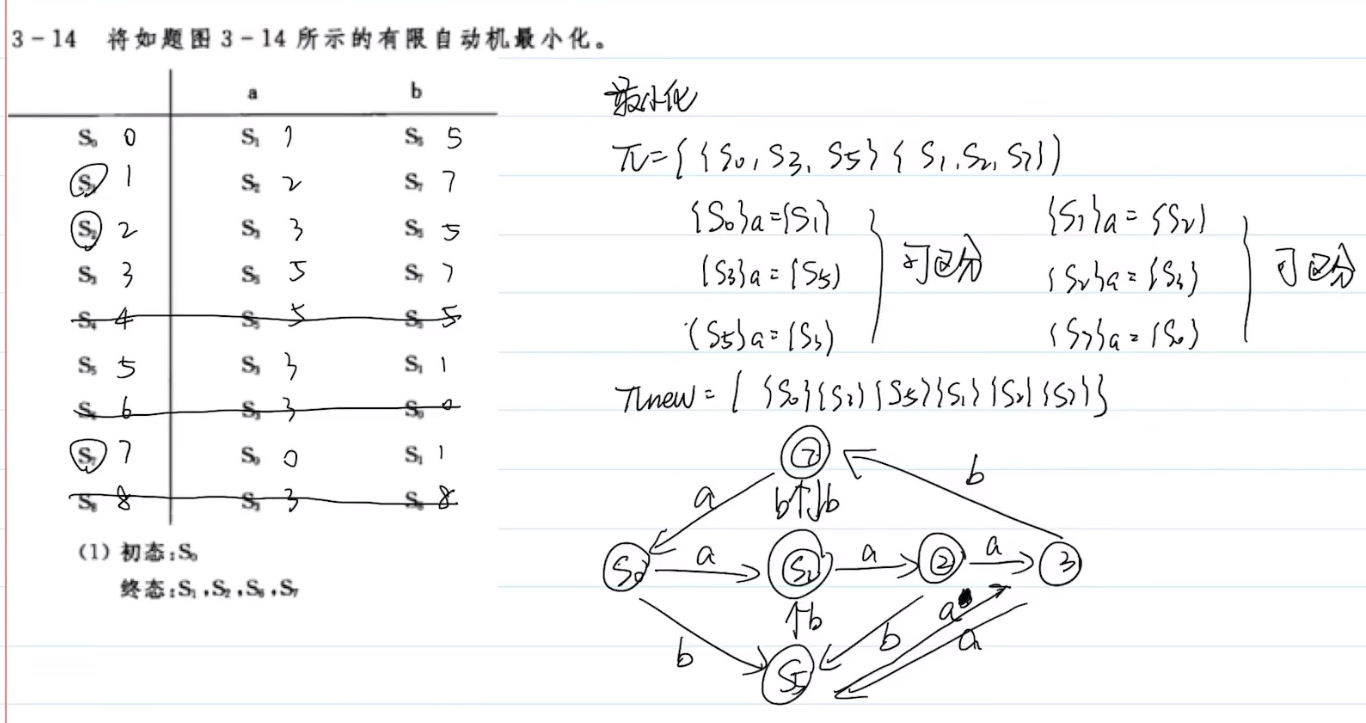 3-14 将如题图3-14所示的有限自动机最小化。
a b
S₀ 0 S₁ 1 S₅ 5
S₁ 1 S₂ 2 S₇ 7
S₂ 2 S₃ 3 S₅ 5
S₃ 3 S₅ 5 S₇ 7
S₄ 4 S₅ 5 5
S₅ 5 S₃ 3 S₁ 1
6 S₃ 3 S₀ 0
S₇ 7 S₀ 0 S₁ 1
S₈ 8 S₃ 3 8
(1) 初态:S₀
终态:S₁,S₂,S₆,S₇
最小化
π={{S0,S3,S5}{S1,S2,S7}}
{S0}a={S1}
{S3}a={S5} 可区分
{S5}a={S3}
{S1}a={S2}
{S2}a={S3} 可区分
{S7}a={S0}
πnew={{S0}{S3}{S5}{S1}{S2}{S7}}
7
a b b b
S0 a S1 a 2 a 3
b b b a a
S5